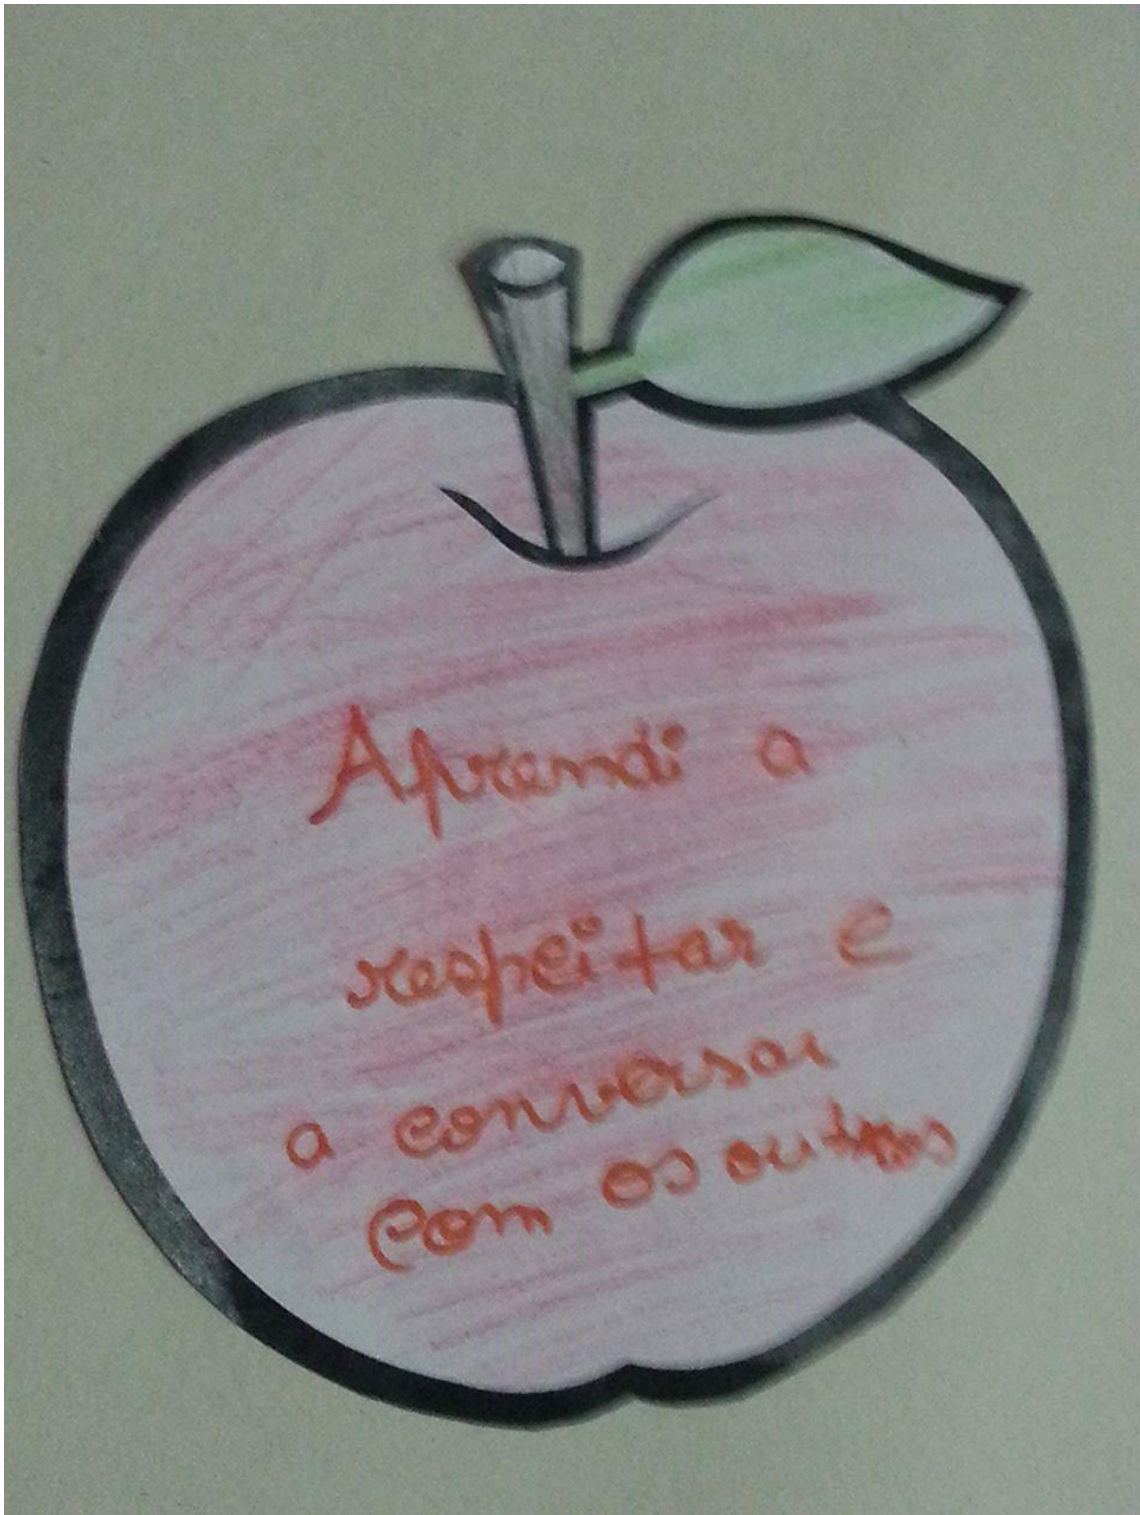 Aprendi a
respeitar e
a conversar
com os outros